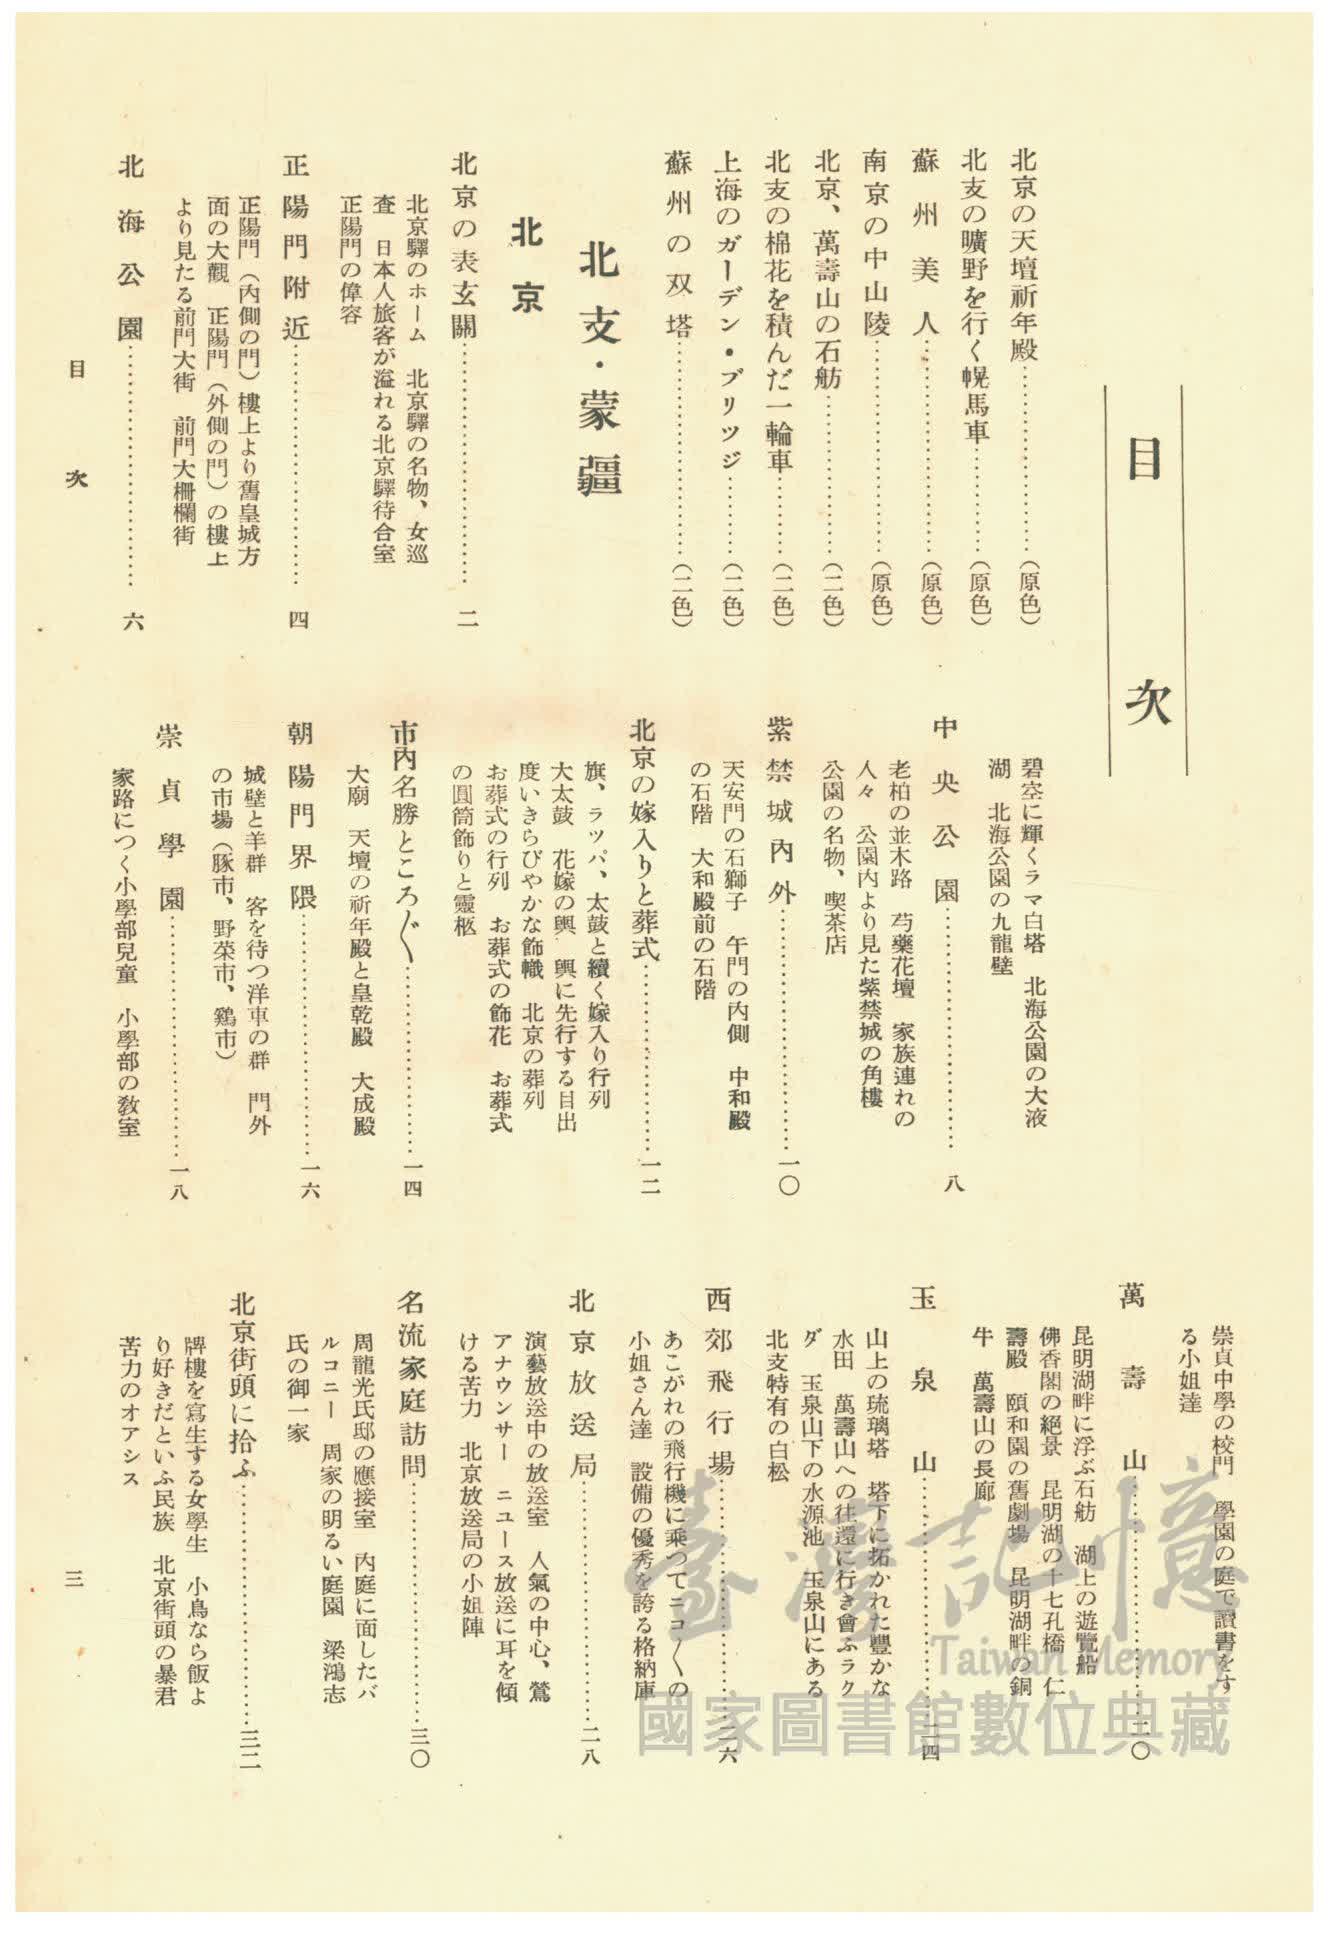 目次
北京の天壇祈年殿……………………（原色）
北支の曠野を行く幌馬車…………（原色）
蘇州美人……………………（原色）
南京の中山陵……………………（原色）
北京、萬壽山の石舫……………………（二色）
北支の棉花を積んだ一輪車…………（二色）
上海のガーデン・ブリツジ…………（二色）
蘇州の双塔……………………（二色）
北支・蒙疆
北京
北京の表玄關……………………二
北京驛のホーム　北京驛の名物、女巡
査　日本人旅客が溢れる北京驛待合室
正陽門の偉容
正陽門附近……………………四
正陽門（內側の門）樓上より舊皇城方
面の大觀　正陽門（外側の門）の樓上
より見たる前門大街　前門大柵欄街
北海公園……………………六
碧空に輝くラマ白塔　北海公園の大液
湖　北海公園の九龍壁
中央公園……………………八
老柏の並木路　芍藥花壇　家族連れの
人々　公園內より見た紫禁城の角樓
公園の名物、喫茶店
紫禁城內外……………………一〇
天安門の石獅子　午門の內側　中和殿
の石階　大和殿前の石階
北京の嫁入りと葬式……………………一二
旗、ラツパ、太鼓と續く嫁入り行列
大太鼓　花嫁の輿　輿に先行する目出
度いきらびやかな飾幟　北京の葬列
お葬式の行列　お葬式の飾花　お葬式
の圓筒飾りと靈柩
市內名勝ところ〴〵……………………一四
大廟　天壇の祈年殿と皇乾殿　大成殿
朝陽門界隈……………………一六
城壁と羊群　客を待つ洋車の群　門外
の市場（豚市、野菜市、鷄市）
崇貞學園……………………一八
家路につく小學部兒童　小學部の教室
崇貞中學の校門　學園の庭で讀書をす
る小姐達
萬壽山……………………二〇
昆明湖畔に浮ぶ石舫　湖上の遊覽船
佛香閣の絕景　昆明湖の十七孔橋　仁
壽殿　頤和園の舊劇場　昆明湖畔の銅
牛　萬壽山の長廊
玉泉山……………………二四
山上の琉璃塔　塔下に拓かれた豐かな
水田　萬壽山への往還に行き會ふラク
ダ　玉泉山下の水源池　玉泉山にある
北支特有の白松
西郊飛行場……………………二六
あこがれの飛行機に乘つてニコ〱の
小姐さん達　設備の優秀を誇る格納庫
北京放送局……………………二八
演藝放送中の放送室　人氣の中心、鶯
アナウンサー　ニユース放送に耳を傾
ける苦力　北京放送局の小姐陣
名流家庭訪問……………………三〇
周龍光氏邸の應接室　內庭に面したバ
ルコニー　周家の明るい庭園　梁鴻志
氏の御一家
北京街頭に拾ふ……………………三二
牌樓を寫生する女學生　小鳥なら飯よ
り好きだといふ民族　北京街頭の暴君
苦力のオアシス
目次
三
臺灣記憶
Taiwan Memory
國家圖書館數位典藏